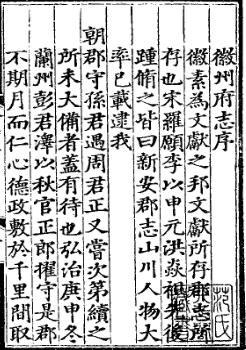 徽州府志序
徽素為文獻之邦文獻所存郡志所
存也宋羅願李以申元洪焱祖先後
踵脩之皆曰新安郡志山川人物大
率已載逮我
朝郡守孫君遇周君正又嘗次第續之
所未大備者蓋有待也弘治庚申冬
蘭州彭君澤以秋官正郎擢守是郡
不期月而仁心德政敷於千里間取
范氏